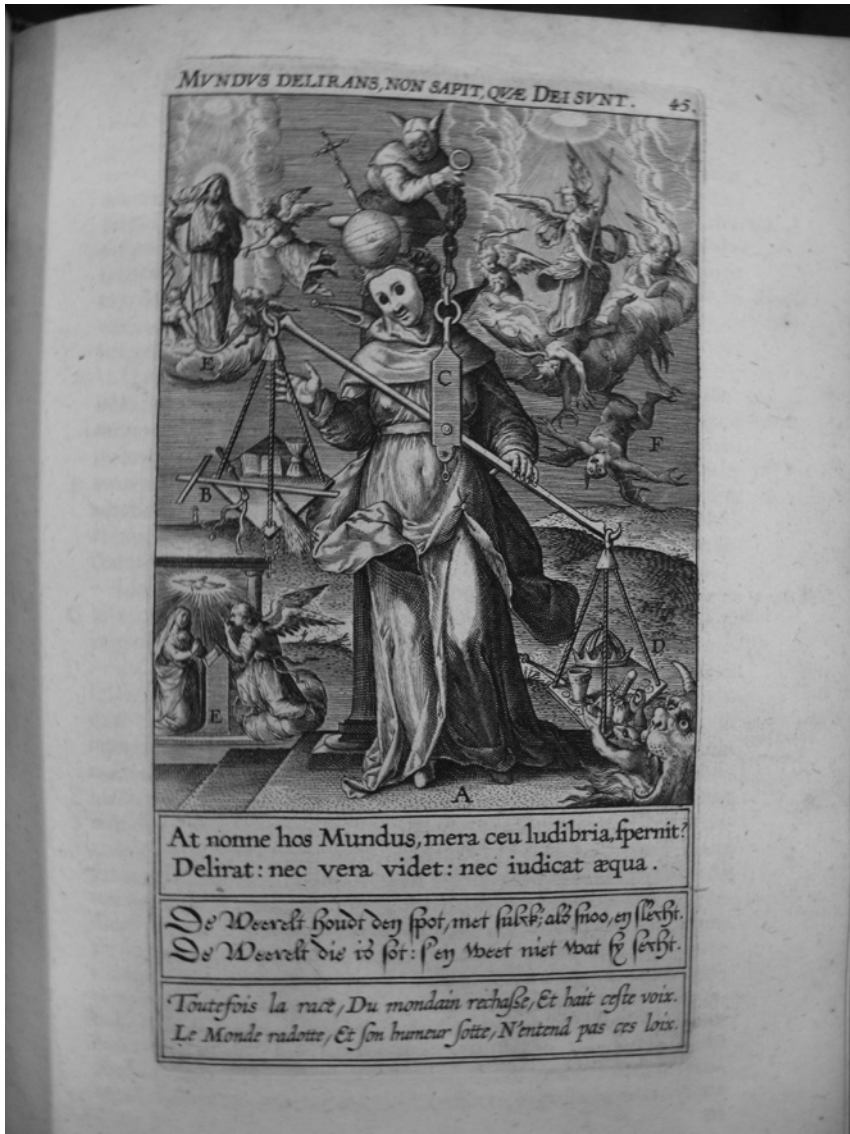 MVNDVS DELIRANS, NON SAPIT, QVÆ DEI SVNT. 45.
E
C
B
F
D
E
A
At nonne hos Mundus, mera ceu ludibria, ſpernit?
Delirat: nec vera videt: nec iudicat æqua.
De Weerelt houdt den ſpot, met ſulck; als ſnoo, en ſlecht.
De Weerelt die is ſot: ſ'en weet niet wat ſy ſecht.
Toutefois la race, Du mondain rechaſſe, Et hait ceſte voix.
Le Monde radotte, Et ſon humeur ſotte, N'entend pas ces loix.